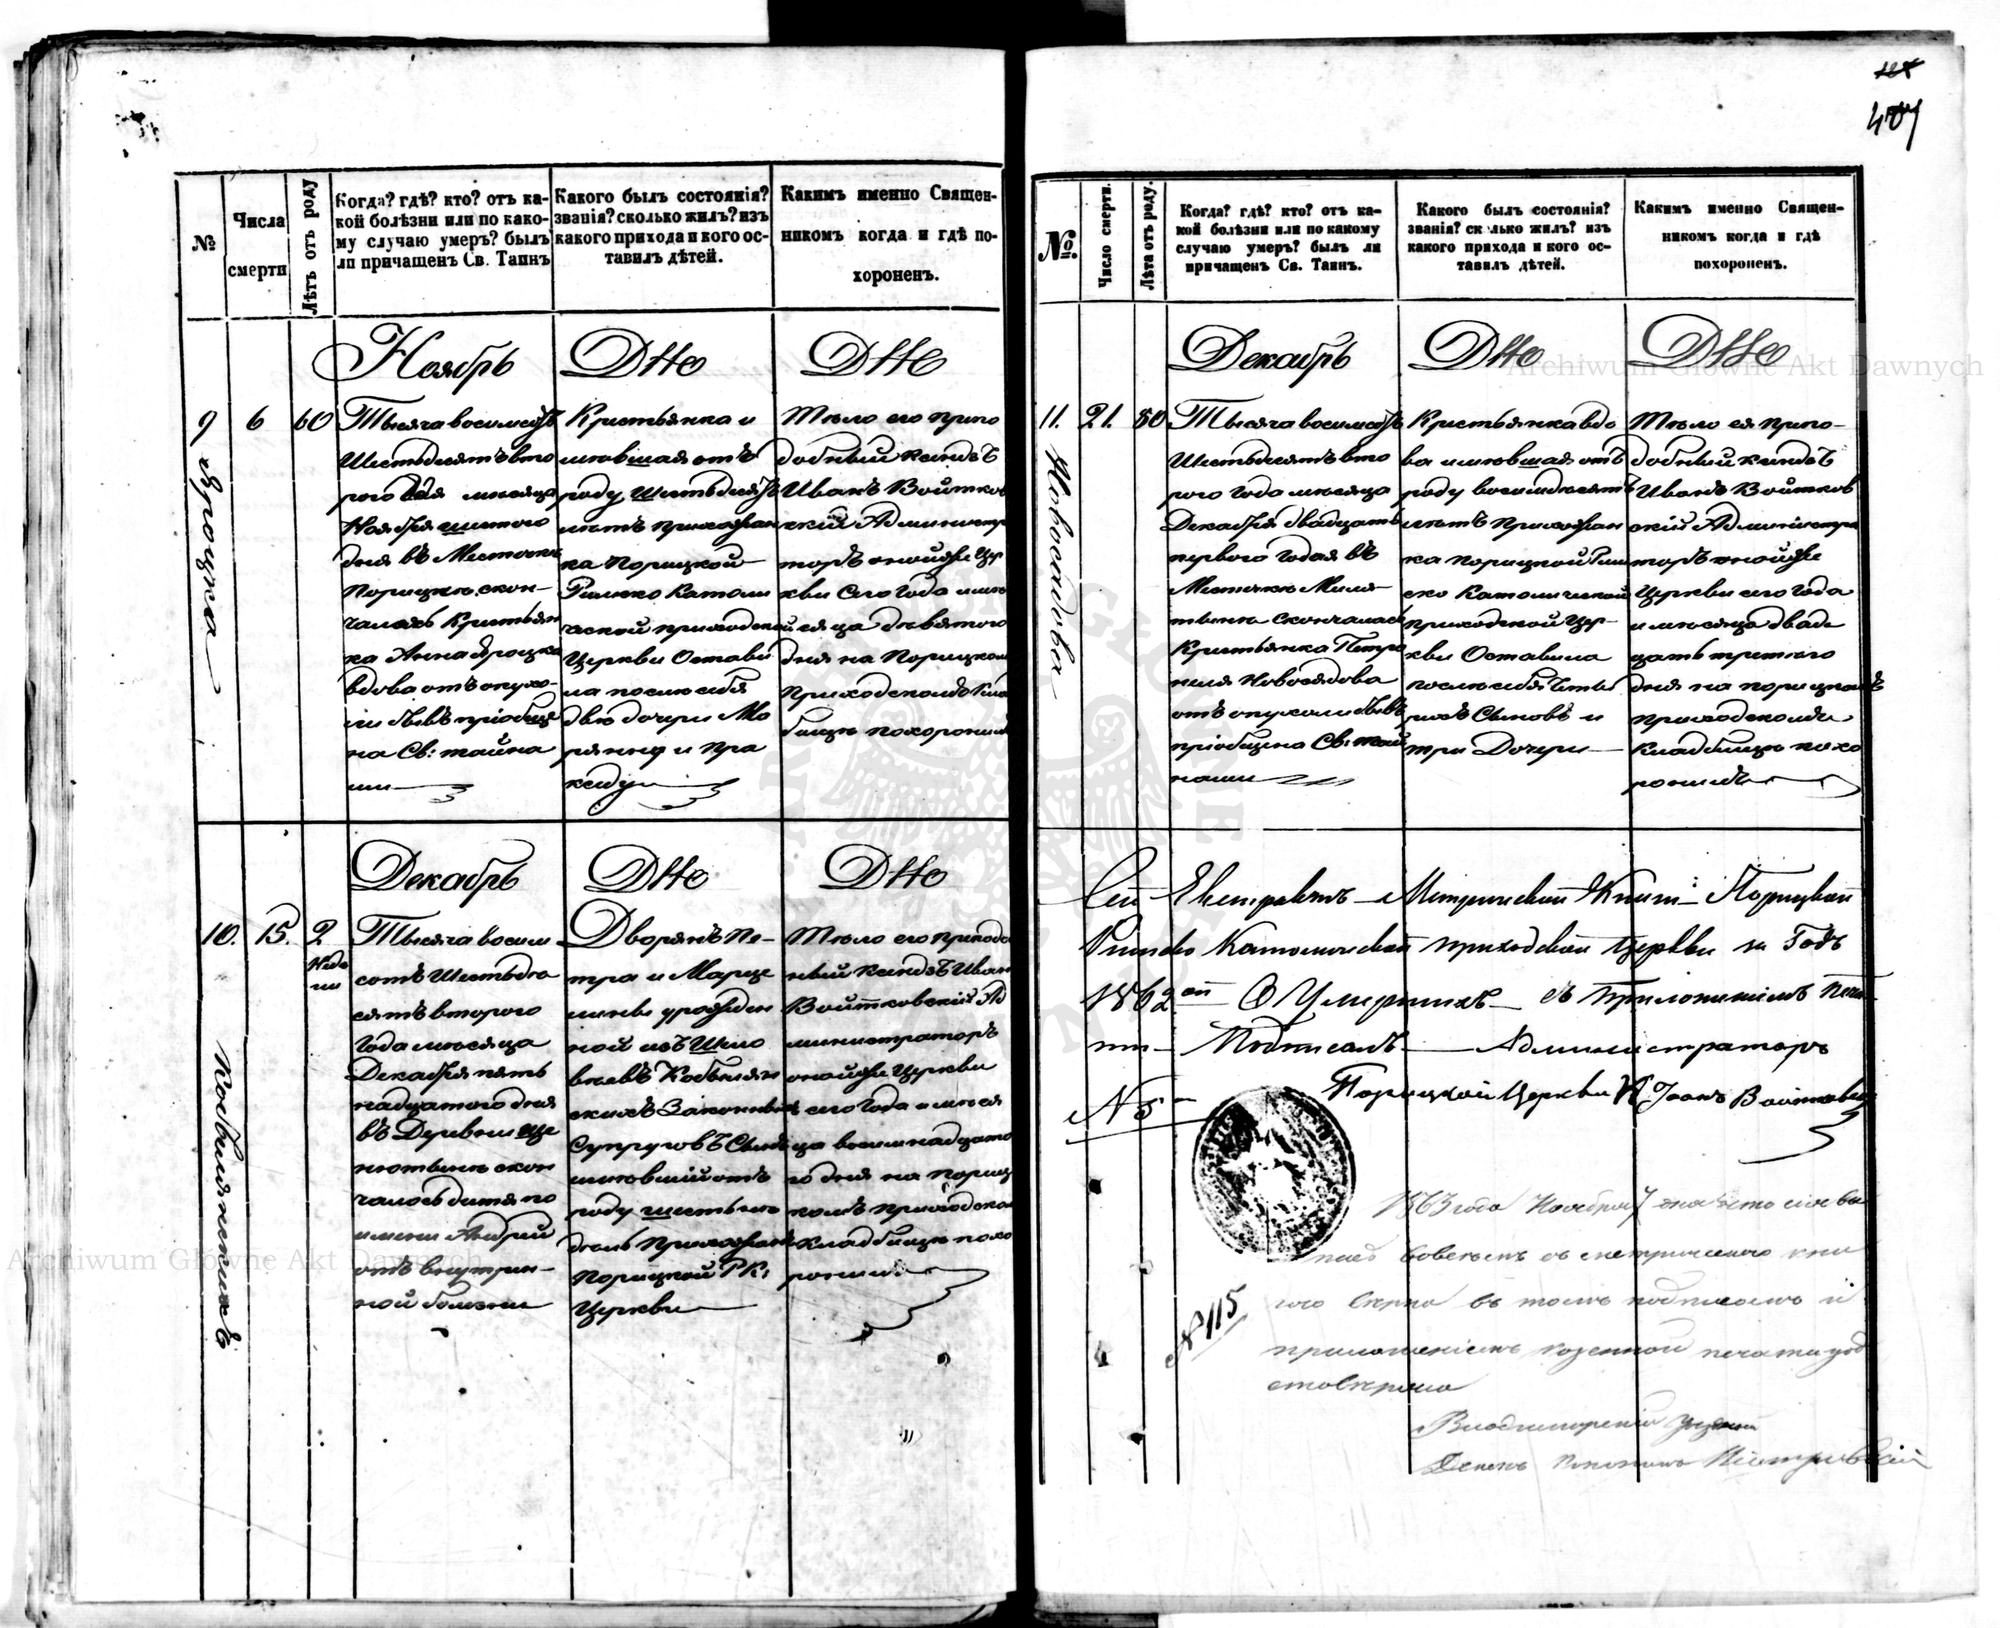 407
№
Числа
смерти
Лѣтъ отъ роду
Когда? гдѣ? кто? отъ ка-
кой болѣзни или по како-
му случаю умеръ? былъ
ли причащенъ Св. Таинъ
Какого былъ состоянія?
званія? сколько жилъ? изъ
какого прихода и кого ос-
тавилъ дѣтей.
Каким​ъ именно Священ-
никомъ когда и гдѣ по-
хороненъ.
Ноябрь
9
6
60
Яроцка
Тысяча восимсотъ
Шестьдесятъ вто
рого года мѣсяца
Ноября шестого
дня въ Местечкѣ
Порицкѣ скон-
чалась Кристьян
ка Анна Яроцка
вдова отъ опухо-
ли бывъ пріобще
на Св: тайна
ми
Кристьянка и
мѣвшая отъ
роду шестьдесятъ
лѣтъ прихожан
ка Порицкой
Римско Католи
ческой приходской
Церкви Остави
ла послѣ себя
двѣ дочери Ма
рянну и Пра
кседу
Тѣло его припо
добный ксендзъ
Иванъ Войтков
скій Администра
торъ оной же Цер
кви Сего Года мѣ
сяца девятого
дня на Порицком
Приходскомъ Кла
бищѣ похоронилъ
Декабрь
10.
15.
2
Неде
ли
Кобылянскихъ
Тысяча восим
сотъ Шестьде
сятъ второго
Года мѣсяца
Декабря пять
надцатого дня
въ Деревни Ще
нютынѣ скон
чалось дитя по
имени Андрей
отъ внутрин-
ной болезни
Дворянъ Пе-
тра и Марце
лины урожден
ной изъ
Кобылян
скихъ Законных
Супруговъ Сынъ
имѣвшій отъ
роду шесть не
дель Прихожанъ
Порицкой Р К:
Церкви
Тѣло его приподо
бный ксендзъ Иван
Войтковскій Ад
министраторъ
оной же Церкви
сего Года мѣся
ца восимнадцато
го дня на Пориц
комъ Приходском
Кладбищѣ похо
ронилъ
№.
Число смерти.
Лѣта отъ роду.
Когда? гдѣ? кто? отъ ка-
кой болѣзни или по какому
случаю умеръ? былъ ли
причащенъ Св. Таинъ.
Какого былъ состоянія?
званія? сколько жилъ? изъ
какого прихода и кого ос-
тавилъ дѣтей.
Какимъ именно Священ-
никомъ когда и гдѣ
похороненъ.
Декабрь
11.
21.
80
Новосадова
Тысяча восимсотъ
Шестьдесятъ вто
рого Года мѣсяца
Декабря двадцать
первого Года въ
Местечкѣ Миля
тынѣ скончалась
Кристьянка Петро
неля Новосядова
отъ опухоли бывъ
пріобщена Св: тай
нами
Кристьянка вдо
ва имѣвшая отъ
роду восимдесятъ
лѣтъ Прихожан
ка Порицкой Рим
ско Католической
приходской Цер-
кви Оставила
послѣ себя четы
рехъ Сыновъ и
три Дочери
Тѣло ея припо-
добный ксендзъ
Иванъ Войтков
скій Администра
торъ оной же
Церкви сего Года
и мѣсяца двад
цать третього
дня на порицкомъ
приходскомъ
Кладбищѣ похо
ронилъ
Сей Екстрактъ Метрической Книги Порицкой
Римско Католической приходской Церкви за Годъ
1862 ой О Умершихъ съ Приложеніемъ Печа
ти Подписалъ Администраторъ
Порицкой Церкви К. Іоанъ Войтковскій
№ 5
1863 года Ноября 7 дня что сія вы
пись вовсемъ съ метрическою кни
гою верна въ томъ подписомъ и
приложеніемъ казенной печати удо
стоверяю
Владимирскій уездный
Деканъ
№ 115
Archiwum Główne Akt Dawnych
Archiwum Główne Akt Dawnych